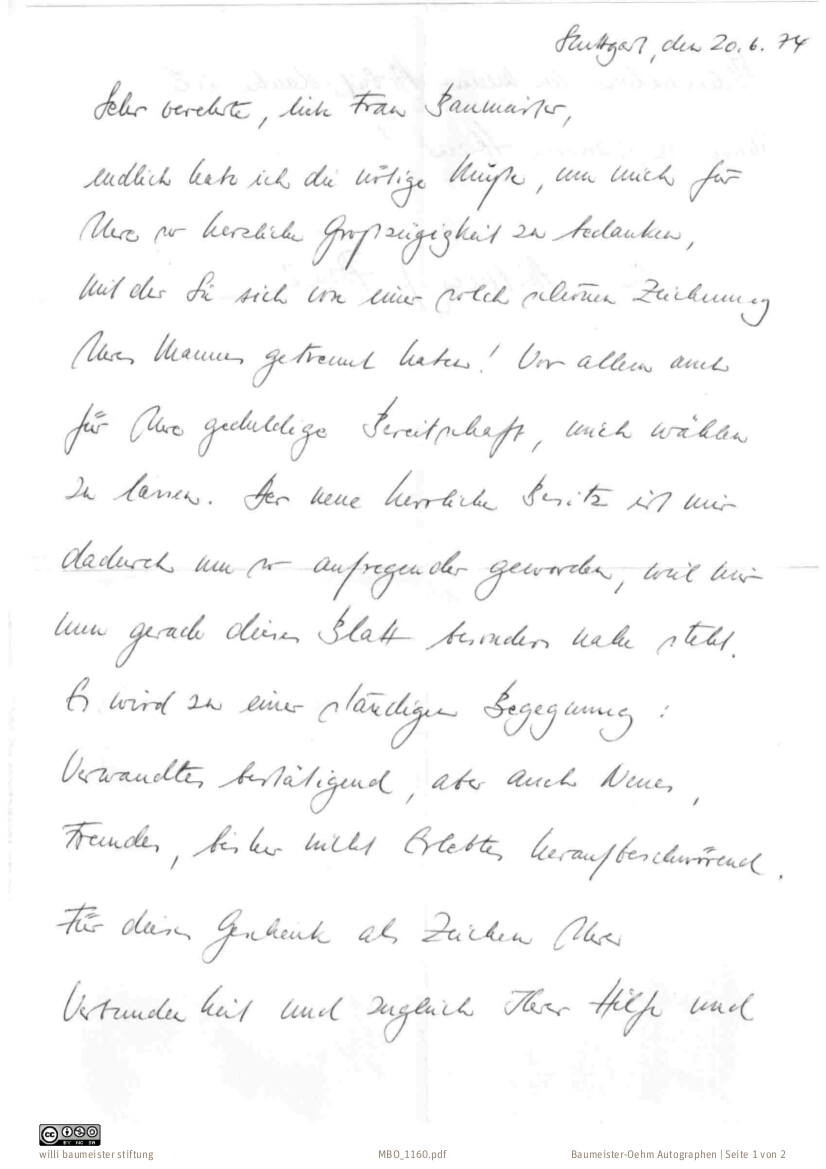 Stuttgart, den 20.6.74
Sehr verehrte, liebe Frau Baumeister,
endlich habe ich die nötige Muße, um mich für
Ihre so herzliche Großzügigkeit zu bedanken,
mit der Sie sich von einer solch schönen Zeichnung
Ihres Mannes getrennt haben! Vor allem auch
für Ihre geduldige Bereitschaft, mich wählen
zu lassen. Der neue herrliche Besitz ist mir
dadurch um so aufregender geworden, weil mir
nun gerade dieses Blatt besonders nahe steht.
Es wird zu einer ständigen Begegnung:
Verwandtes bestätigend, aber auch Neues,
Fremdes, bisher nicht Erlebtes heraufbeschwörend.
Für dieses Geschenk als Zeichen Ihrer
Verbundenheit und zugleich Ihrer Hilfe und
cc BY NC SA
willi baumeister stiftung MBO_1160.pdf Baumeister-Oehm Autographen | Seite 1 von 2